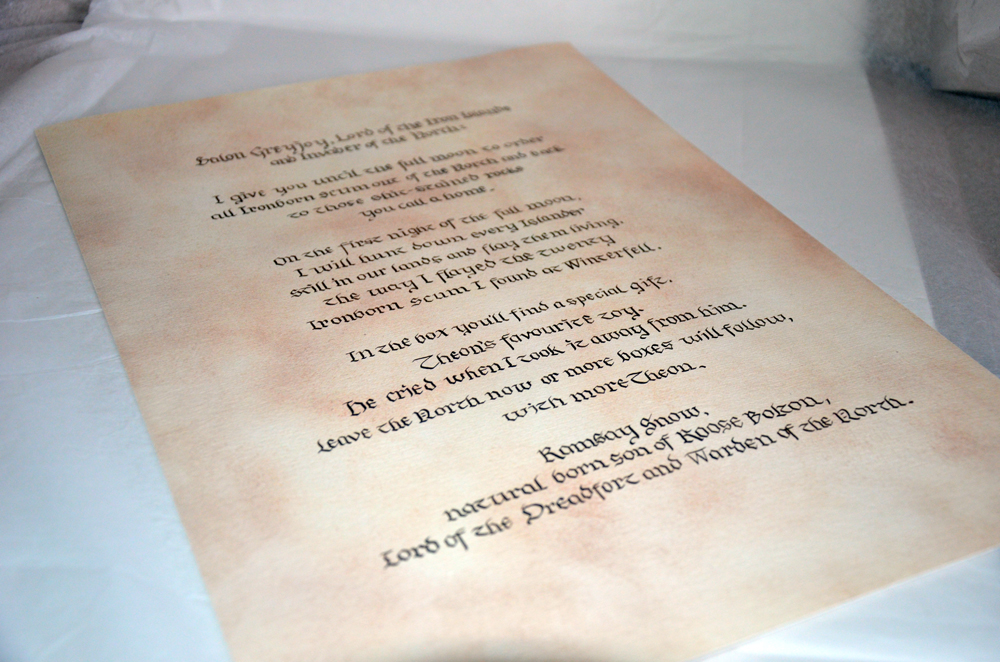 Balon Greyjoy, Lord of the Iron Islands
and Invader of the North:
I give you until the full moon to order
all Ironborn scum out of the North and back
to those shit-stained rocks
you call a home.
On the first night of the full moon,
I will hunt down every Islander
still in our lands and flay them living,
the way I flayed the twenty
Ironborn scum I found at Winterfell.
In the box you'll find a special gift.
Theon's favourite toy.
He cried when I took it away from him.
Leave the North now or more boxes will follow,
with more Theon.
Ramsay Snow,
natural born son of Roose Bolton,
Lord of the Dreadfort and Warden of the North.